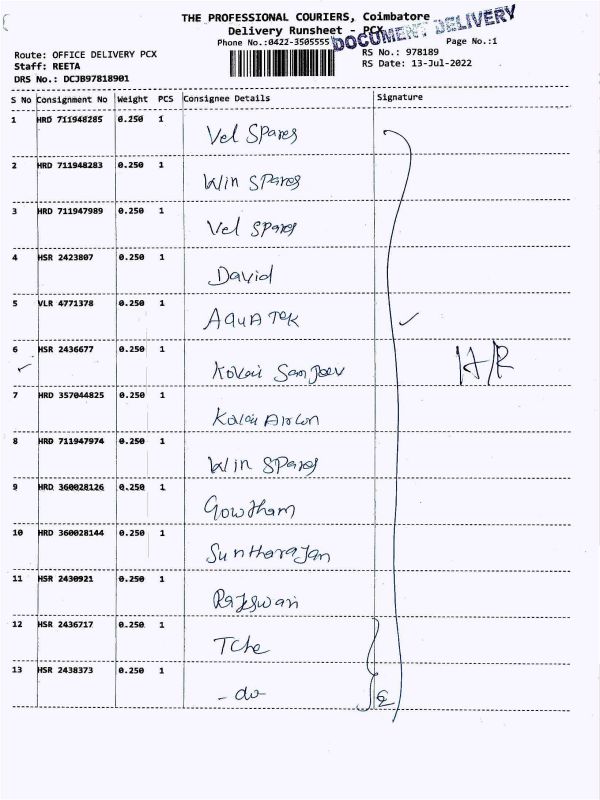 THE PROFESSIONAL COURIERS, Coimbatore
Delivery Runsheet - PCX
DOCUMENT DELIVERY
Phone No.:0422-3505555 Page No.:1
Route: OFFICE DELIVERY PCX RS No.: 978189
Staff: REETA RS Date: 13-Jul-2022
DRS No.: DCJB97818901
S No Consignment No Weight PCS Consignee Details Signature
1 HRD 711948285 0.250 1 Vel Spares
2 HRD 711948283 0.250 1 Win Spares
3 HRD 711947989 0.250 1 Vel Spares
4 HSR 2423807 0.250 1 David
5 VLR 4771378 0.250 1 AQUA TEK
6 HSR 2436677 0.250 1 Kovai Sanjeev H/R
7 HRD 357044825 0.250 1 Kovai Aircon
8 HRD 711947974 0.250 1 Win Spares
9 HRD 360028126 0.250 1 Gowtham
10 HRD 360028144 0.250 1 Suntharajan
11 HSR 2430921 0.250 1 Rajeswari
12 HSR 2436717 0.250 1
13 HSR 2438373 0.250 1 - do -